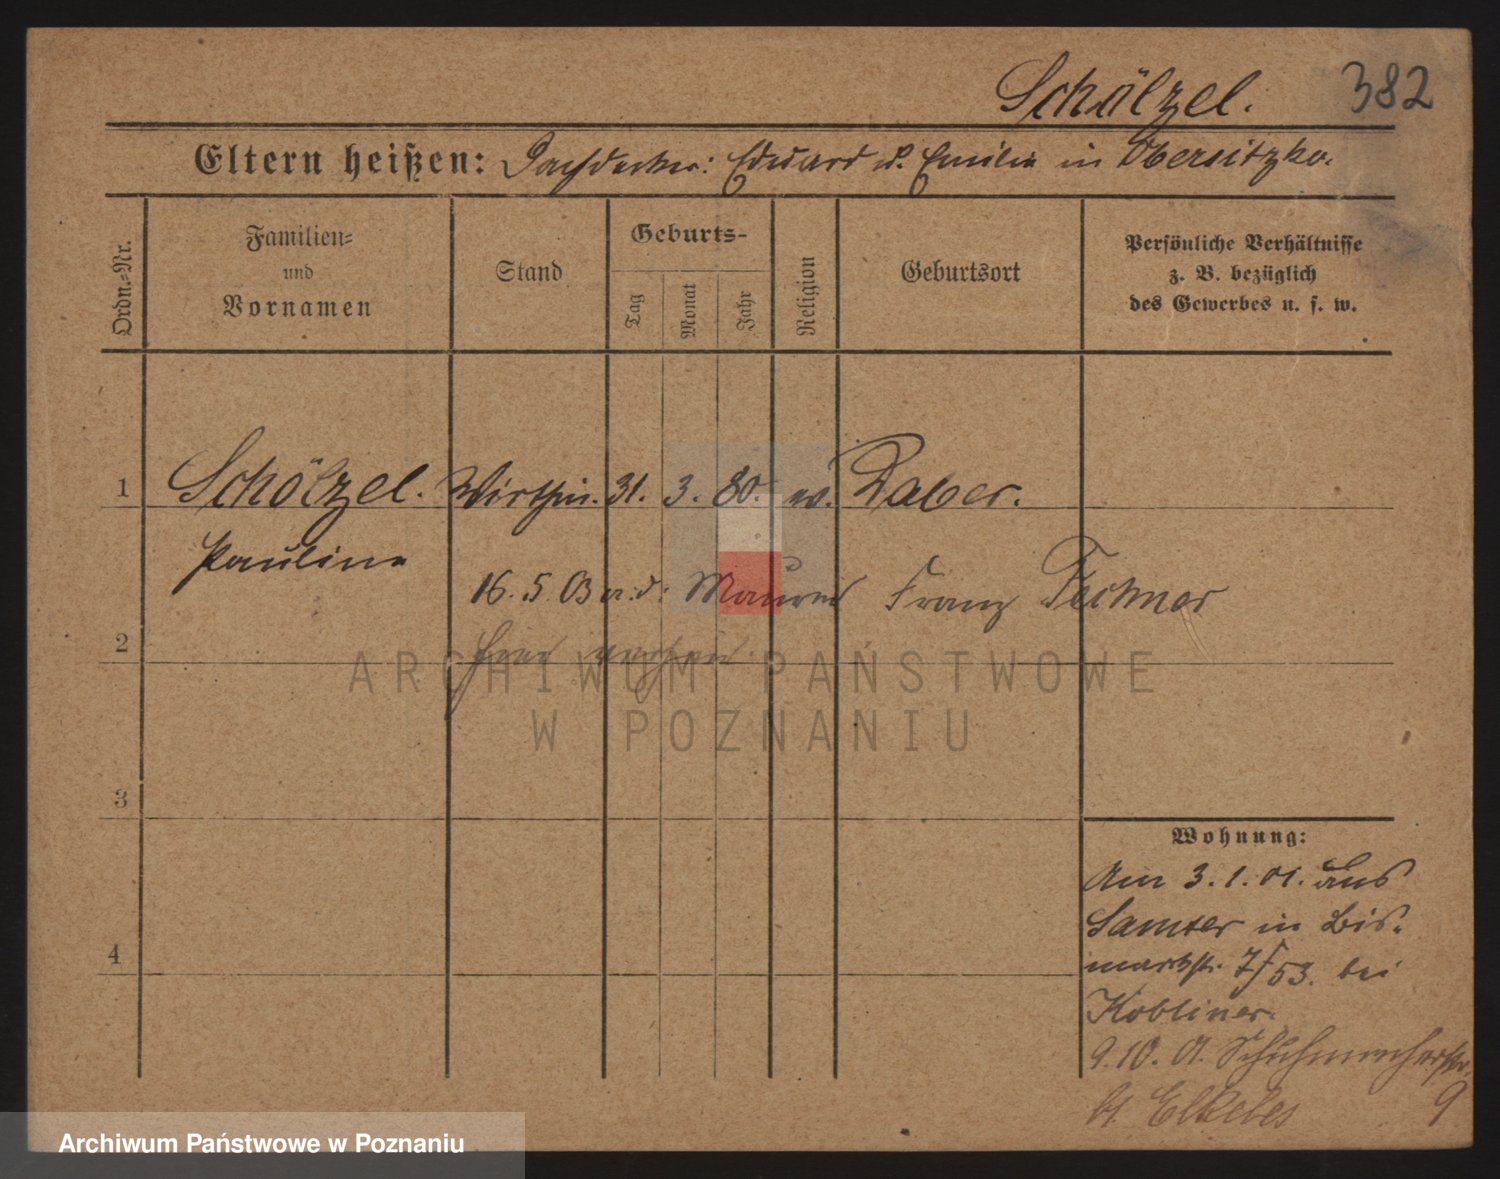 Schälzel.
382
Eltern heißen: Dachdecker: Eduard u. Emilie in Obersitzko.
Ordn.-Nr.
Familien-
und
Vornamen
Stand
Geburts-
Tag
Monat
Jahr
Religion
Geburtsort
Persönliche Verhältnisse
z. B. bezüglich
des Gewerbes u. s. w.
1 Schölzel. Wirthin. 31. 3. 80. w. Daber.
Pauline
16. 5. 03 a. d. Maurer Franz Fechner
2 hier
3
4
Wohnung:
Am 3. 1. 01. aus
Samter in Bis-
markstr. 7/53. bei
Kobliner.
9. 10. 01. Schuhmacherstr.
bei Elkeles 9
ARCHIWUM PAŃSTWOWE
W POZNANIU
Archiwum Państwowe w Poznaniu